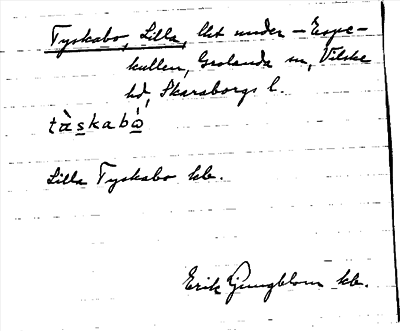 Tyskabo, Lilla, lht under – Espe-
kullen, Grolanda sn, Vilske
hd, Skaraborgs l.
tàskabó
Lilla Tyskabo kb.
Erik Ljungblom kb.